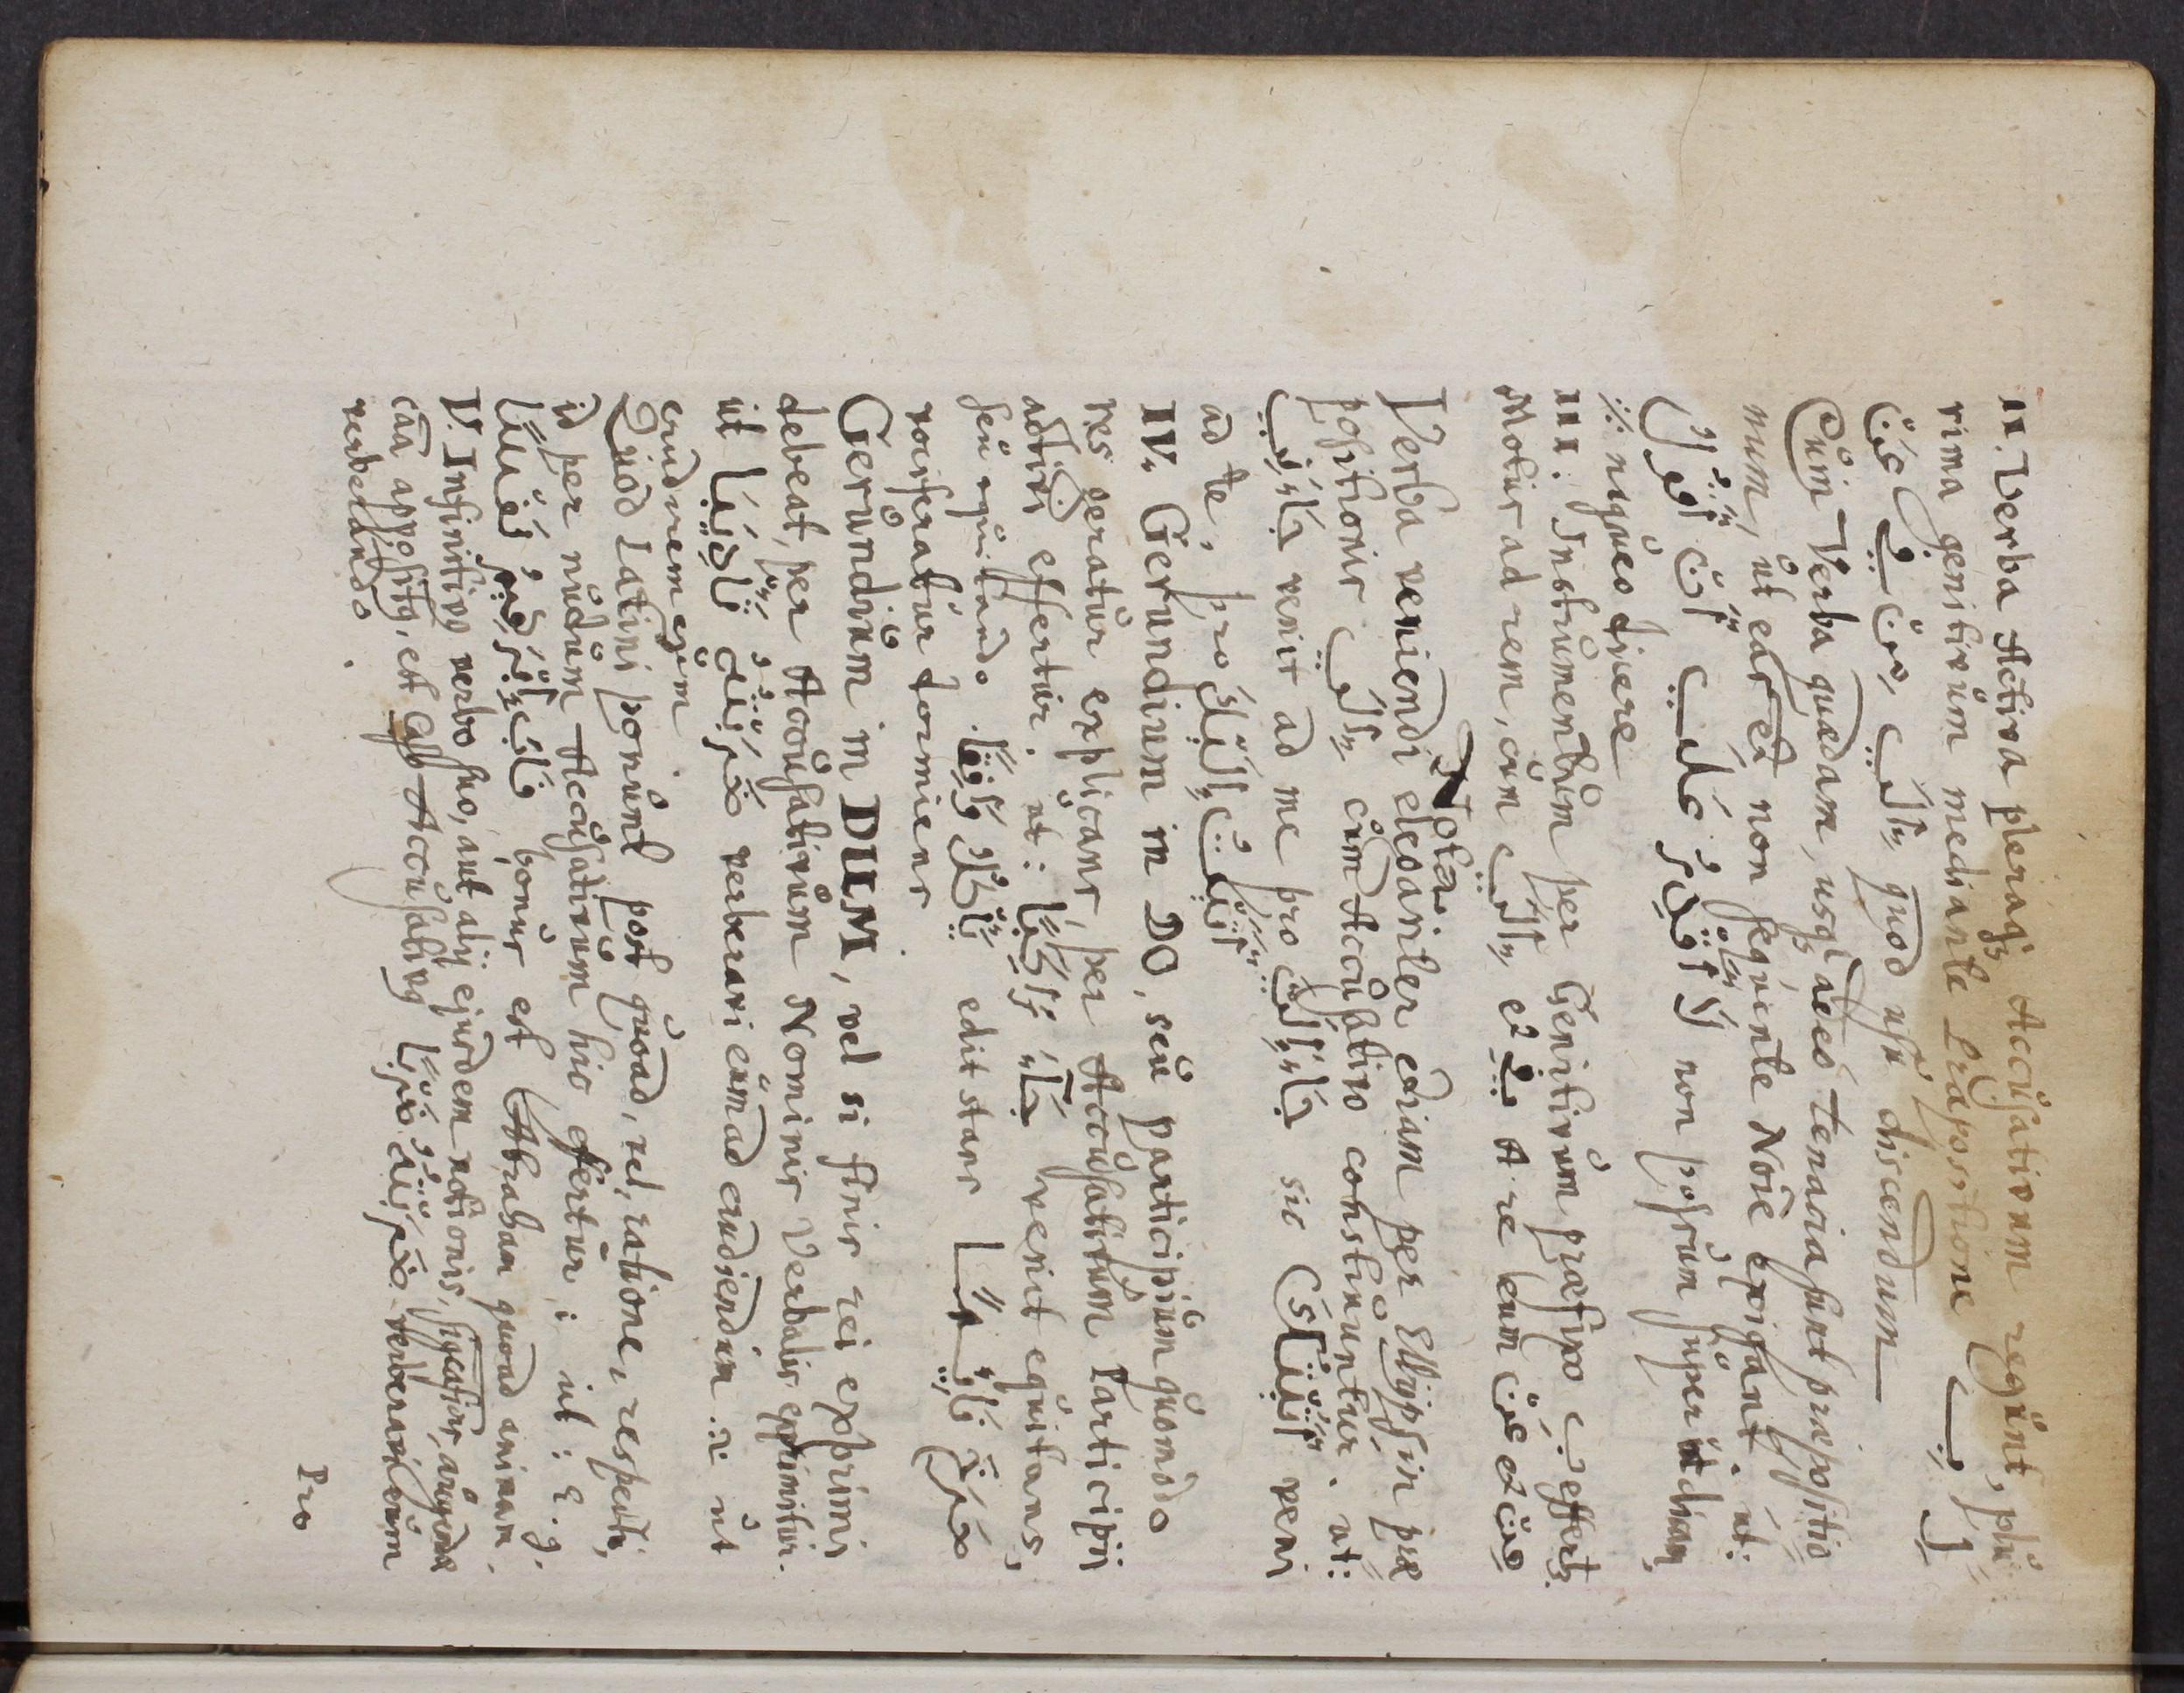 II. Verba Activa pleraq3 Accusativum regunt, plu
rima genitivum mediante Præpositione بِ لِ
عَنْ فِي مِنْ اِلَى quod usu discendum
Cum Verba quædam, usq3 adeo tenacia sunt præpositio
num, ut eas et non sequente Noie exigant. ut:
لَا اَقْدِرُ عَلَى اَنْ اَقُولَ non possum super dicam,
∴ nequeo dicere
III. Instrumentum per Genitivum præfixo بِ effert3.
Motus ad rem, cum اِلَى et فِي A re cum عَنْ et مِنْ
Nota
Verba veniendi eleganter etiam per Ellipsin præ
positionis اِلَى cum Accusativo construuntur. ut:
جَاءَنِي venit ad me pro جَاءَ اِلَيَّ sic اَتَيْتُكَ veni
ad te, pro اَتَيْتُ اِلَيْكَ
IV. Gerundium in DO, seu participium quomodo
res geratur explicans, per Accusativum Participii
activi effertur. ut: جَاءَ رَاكِبًا venit equitans,
seu equitando. اَكَلَ قَائِمًا edit stans
vociferatur dormiens
Gerundium in DUM, vel si finis rei exprimi
debeat, per Accusativum Nominis Verbalis exprimitur.
ut ضَرَبْتُهُ تَأْدِيبًا verberavi eum ad erudiendum .i. ut
erudirem eum
Quod Latini ponunt post quoad, vel, ratione, respectu,
id per nudum Accusativum hic effertur; ut: E. g.
bonus est Abraham quoad animam.
V. Infinitivo verbo suo, aut alij ejusdem notionis, significationis, augendæ
cãa appositus, est casus Accusativus ضَرَبْتُهُ ضَرْبًا verberavi eum
verberando.
Pro